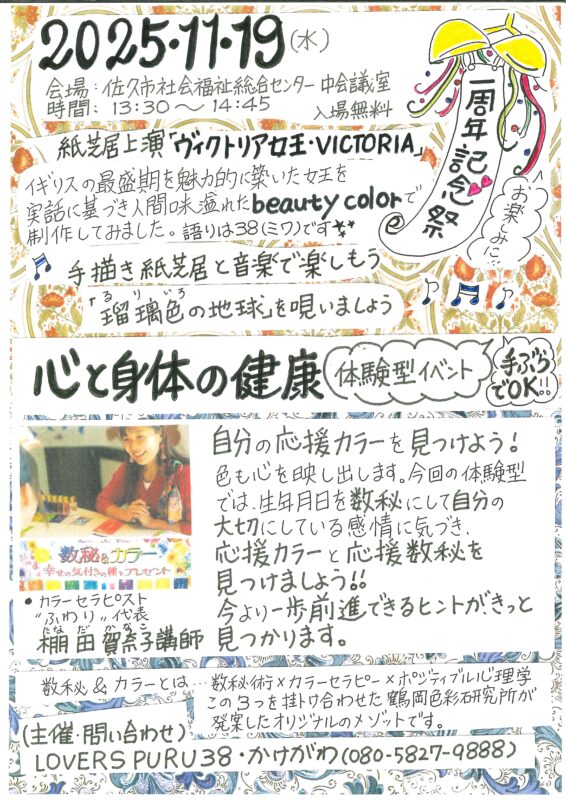 2025・11・19(水)
会場:佐久市社会福祉総合センター 中会議室
時間:13:30〜14:45 入場無料
一周年記念祭
お楽しみに
紙芝居上演「ヴィクトリア女王・VICTORIA」
イギリスの最盛期を魅力的に築いた女王を
実話に基づき人間味溢れたbeauty colorで
制作してみました。語りは38(ミワ)です
手描き紙芝居と音楽で楽しもう
「瑠璃色の地球」を唄いましょう
るりいろ
心と身体の健康
体験型イベント
手ぶら
でOK!!
自分の応援カラーを見つけよう!
色も心を映し出します。今回の体験型
では、生年月日を数秘にして自分の
大切にしている感情に気づき、
応援カラーと応援数秘を
見つけましょう!!
今より一歩前進できるヒントがきっと
見つかります。
数秘&カラー
幸せの気付きの種をプレゼント
●カラーセラピスト
"ふわり"代表
たなだ かなこ
棚田 賀奈子講師
数秘&カラーとは…数秘術×カラーセラピー×ポジティブル心理学
この3つを掛け合わせた鶴岡色彩研究所が
発案したオリジナルのメゾットです。
(主催・問い合わせ)
LOVERS PURU38・かけがわ(080-5827-9888)